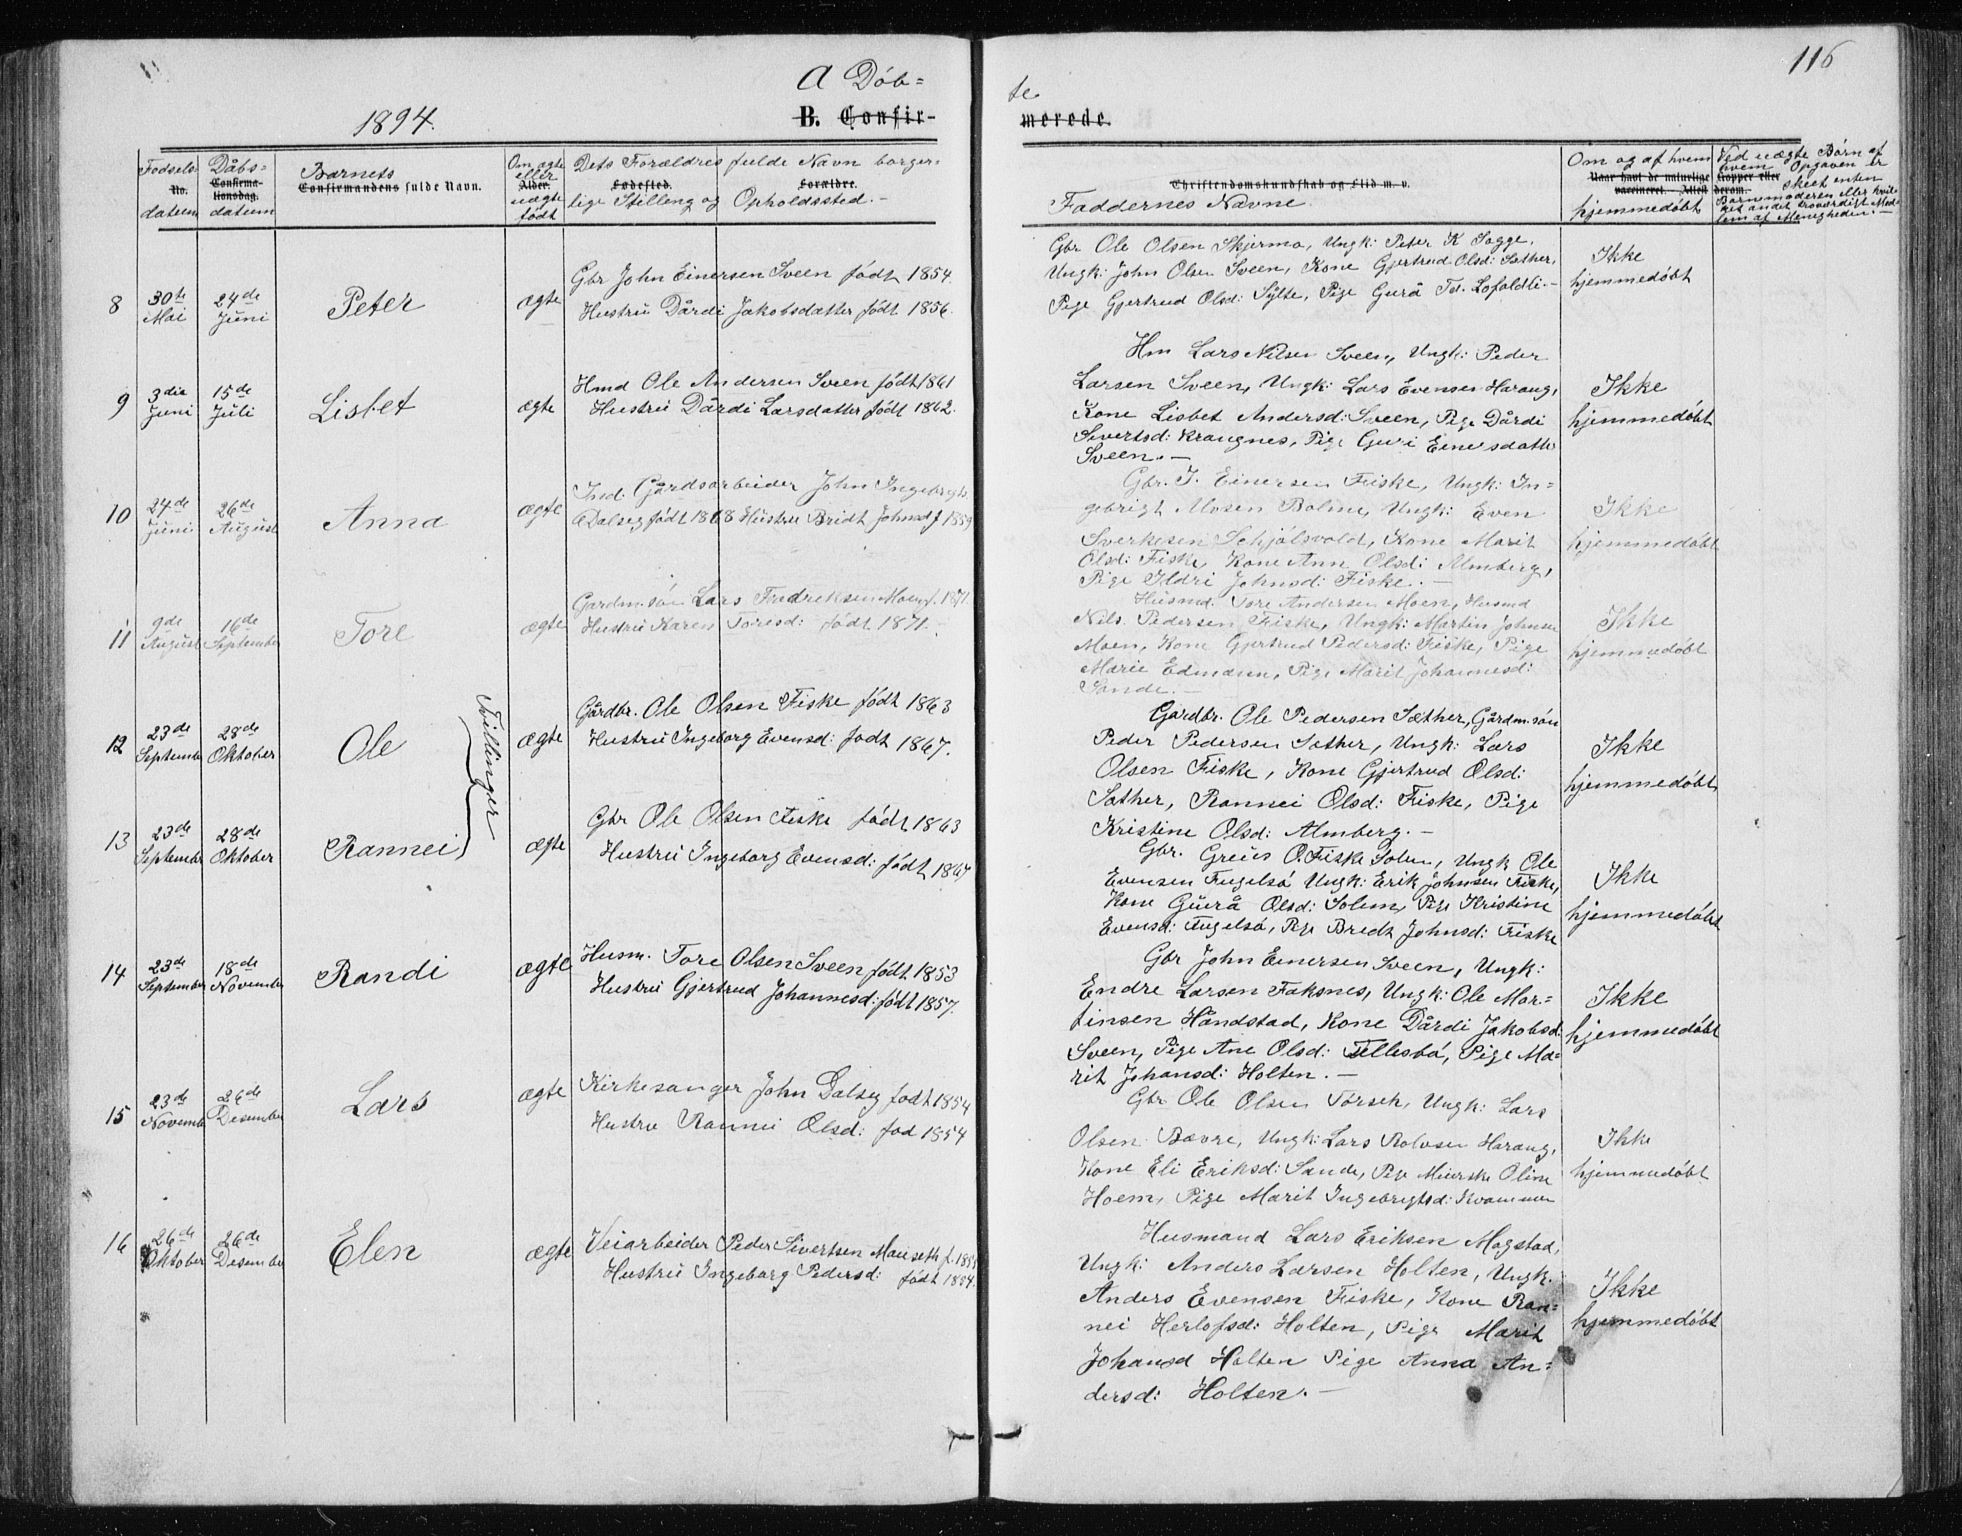 116
A Döb= te
1894.
B. Confir- merede.
Fødsels No. datum
Dåbs= Confirma- tionsdag. datum
Barnets Confirmandens fulde Navn.
Om ægte eller Alder. uægte født
Dets Forældres fulde Navn borger=
Fødested. Forældre.
lige Stilling og Opholdssted. -
Christendomskundskab og Flid m. v.
Faddernes Navne
Om og af hvem
Naar havt de naturlige Kopper eller
vaccineret. - Attest derom.
hjemmedöbt
Ved uægte Börn af
hvem Opgaven er
skeet enten
Barnemoderen eller hvil-
ket andet troværdigt Med-
lem af Menigheden. -
8 30te Mai 24de Juni Peter ægte
Gbr John Einersen Sveen født 1854.
Hustru Dårdi Jakobsdatter født 1856.
Gbr Ole Olsen Skjermo, Ungk: Peter K Sogge,
Ungk: John Olsen Sveen, Kone Gjertrud Olsd: Sæther,
Pige Gjertrud Olsd: Sylte, Pige Gurå Lofaldli. -
Ikke
hjemmedöbt
9 3die Juni 15de Juli Lisbet ægte
Hmd Ole Andersen Sveen født 1861
Hustru Dårdi Larsdatter født 1862.
Hm Lars Nilsen Sveen, Ungk: Peder
Larsen Sveen, Ungk: Lars Evensen Harang,
Kone Lisbet Andersd: Sveen, Pige Dårdi
Sivertsd: Krangnes, Pige Guri Einersdatter
Sveen. -
Ikke
hjemmedöbt
10 24de Juni 26de August Anna ægte
Ind. Gårdsarbeider John Ingebrigts.
Dalseg født 1868 Hustru Bridt Johnsd f 1859
Gbr. I. Einersen Fiske, Ungk: In=
gebrigt Bolme, Ungk: Even
Sverkesen Schjölsvold, Kone Marit
Olsd: Fiske, Kone Ann Olsd: Almberg,
Pige Ildri Johnsd: Fiske. -
Ikke
hjemmedöbt
11 9de August 16de September Tore ægte
Gardm.sön Lars Fredriksen Moen f. 1871.
Hustru Karen Toresd: født 1871.
Husmd. Tore Andersen Moen, Husmd
Nils Pedersen Fiske, Ungk: Martin Johnsen
Moen, Kone Gjertrud Pedersd: Fiske, Pige
Marie Edmdsen, Pige Marit Johannesd:
Sande. -
Ikke
hjemmedöbt
Tvillinger
12 23de September 28de Oktober Ole ægte
Gårdbr. Ole Olsen Fiske født 1863
Hustru Ingeborg Evensd: født 1867.
Gardbr. Ole Pedersen Sæther, Gårdm.sön
Peder Pedersen Sæther, Ungk: Lars
Olsen Fiske, Kone Gjertrud Olsd:
Sæther, Rannei Olsd: Fiske, Pige
Kristine Olsd: Almberg. -
Ikke
hjemmedöbt
13 23de September 28de Oktober Rannei ægte
Gbr Ole Olsen Fiske født 1863
Hustru Ingeborg Evensd: født 1867
Gbr. Greius O. Fiske Solem, Ungk Ole
Evensen Fugelsö Ungk: Erik Johnsen Fiske,
Kone Gurå Olsd: Solem, Pige Kristine
Evensd: Fugelsö, Pige Bredt Johnsd: Fiske
Ikke
hjemmedöbt
14 23de September 18de November Randi ægte
Husm. Tore Olsen Sveen født 1853
Hustru Gjertrud Johannesd: født 1857.
Gbr John Einersen Sveen, Ungk:
Endre Larsen Faksnes, Ungk: Ole Mor=
tinsen Håndstad, Kone Dårdi Jakobsd:
Sveen, Pige Ane Olsd: Tellesbö, Pige Ma=
rit Johansd: Holten. -
Ikke
hjemmedöbt
15 23de November 26de Desember Lars ægte
Kirkesanger John Dalseg født 1854
Hustru Rannei Olsd: fød 1854
Gbr Ole Olsen Torseth, Ungk: Lars
Olsen Bævre, Ungk: Lars Rolvsen Harang,
Kone Eli Eriksd: Sande, Pige Meierske Oline
Hoem, Pige Marit Ingebrigtsd: Kvammen
Ikke
hjemmedöbt
16 26de Oktober 26de Desember Elen ægte
Veiarbeider Peder Sivertsen Mauseth f.
Hustru Ingeborg Pedersd: født
Husmand Lars Eriksen Mogstad,
Ungk: Anders Larsen Holten, Ungk.
Anders Evensen Fiske, Kone Ran=
nei Herlofsd: Holten, Pige Marit
Johansd Holten Pige Anna An=
dersd: Holten. -
Ikke
hjemmedöbt